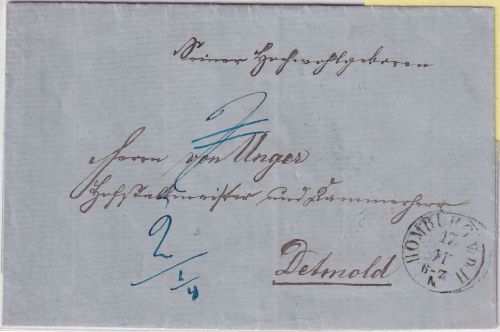 Seiner Hochwohlgeboren
Herrn von Unger
Hofstallmeister und Kammerherr
Detmold
2
1/4
HOMBURG V.D.H
17
6-7
N